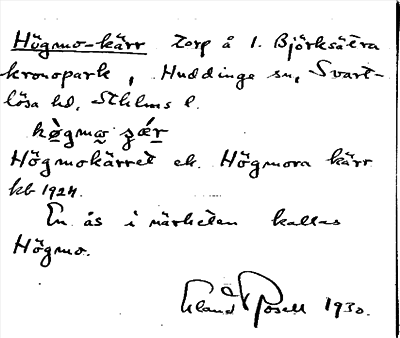 Högmo-kärr torp å l. Björksätra
kronopark, Huddinge sn, Svart-
lösa hd, Sthlms l.
hö̀gmω ʒæ̀r
Högmokärret ek. Högmora kärr
kb 1924.
En ås i närheten kallas
Högmo.
Erland Rosell 1930.